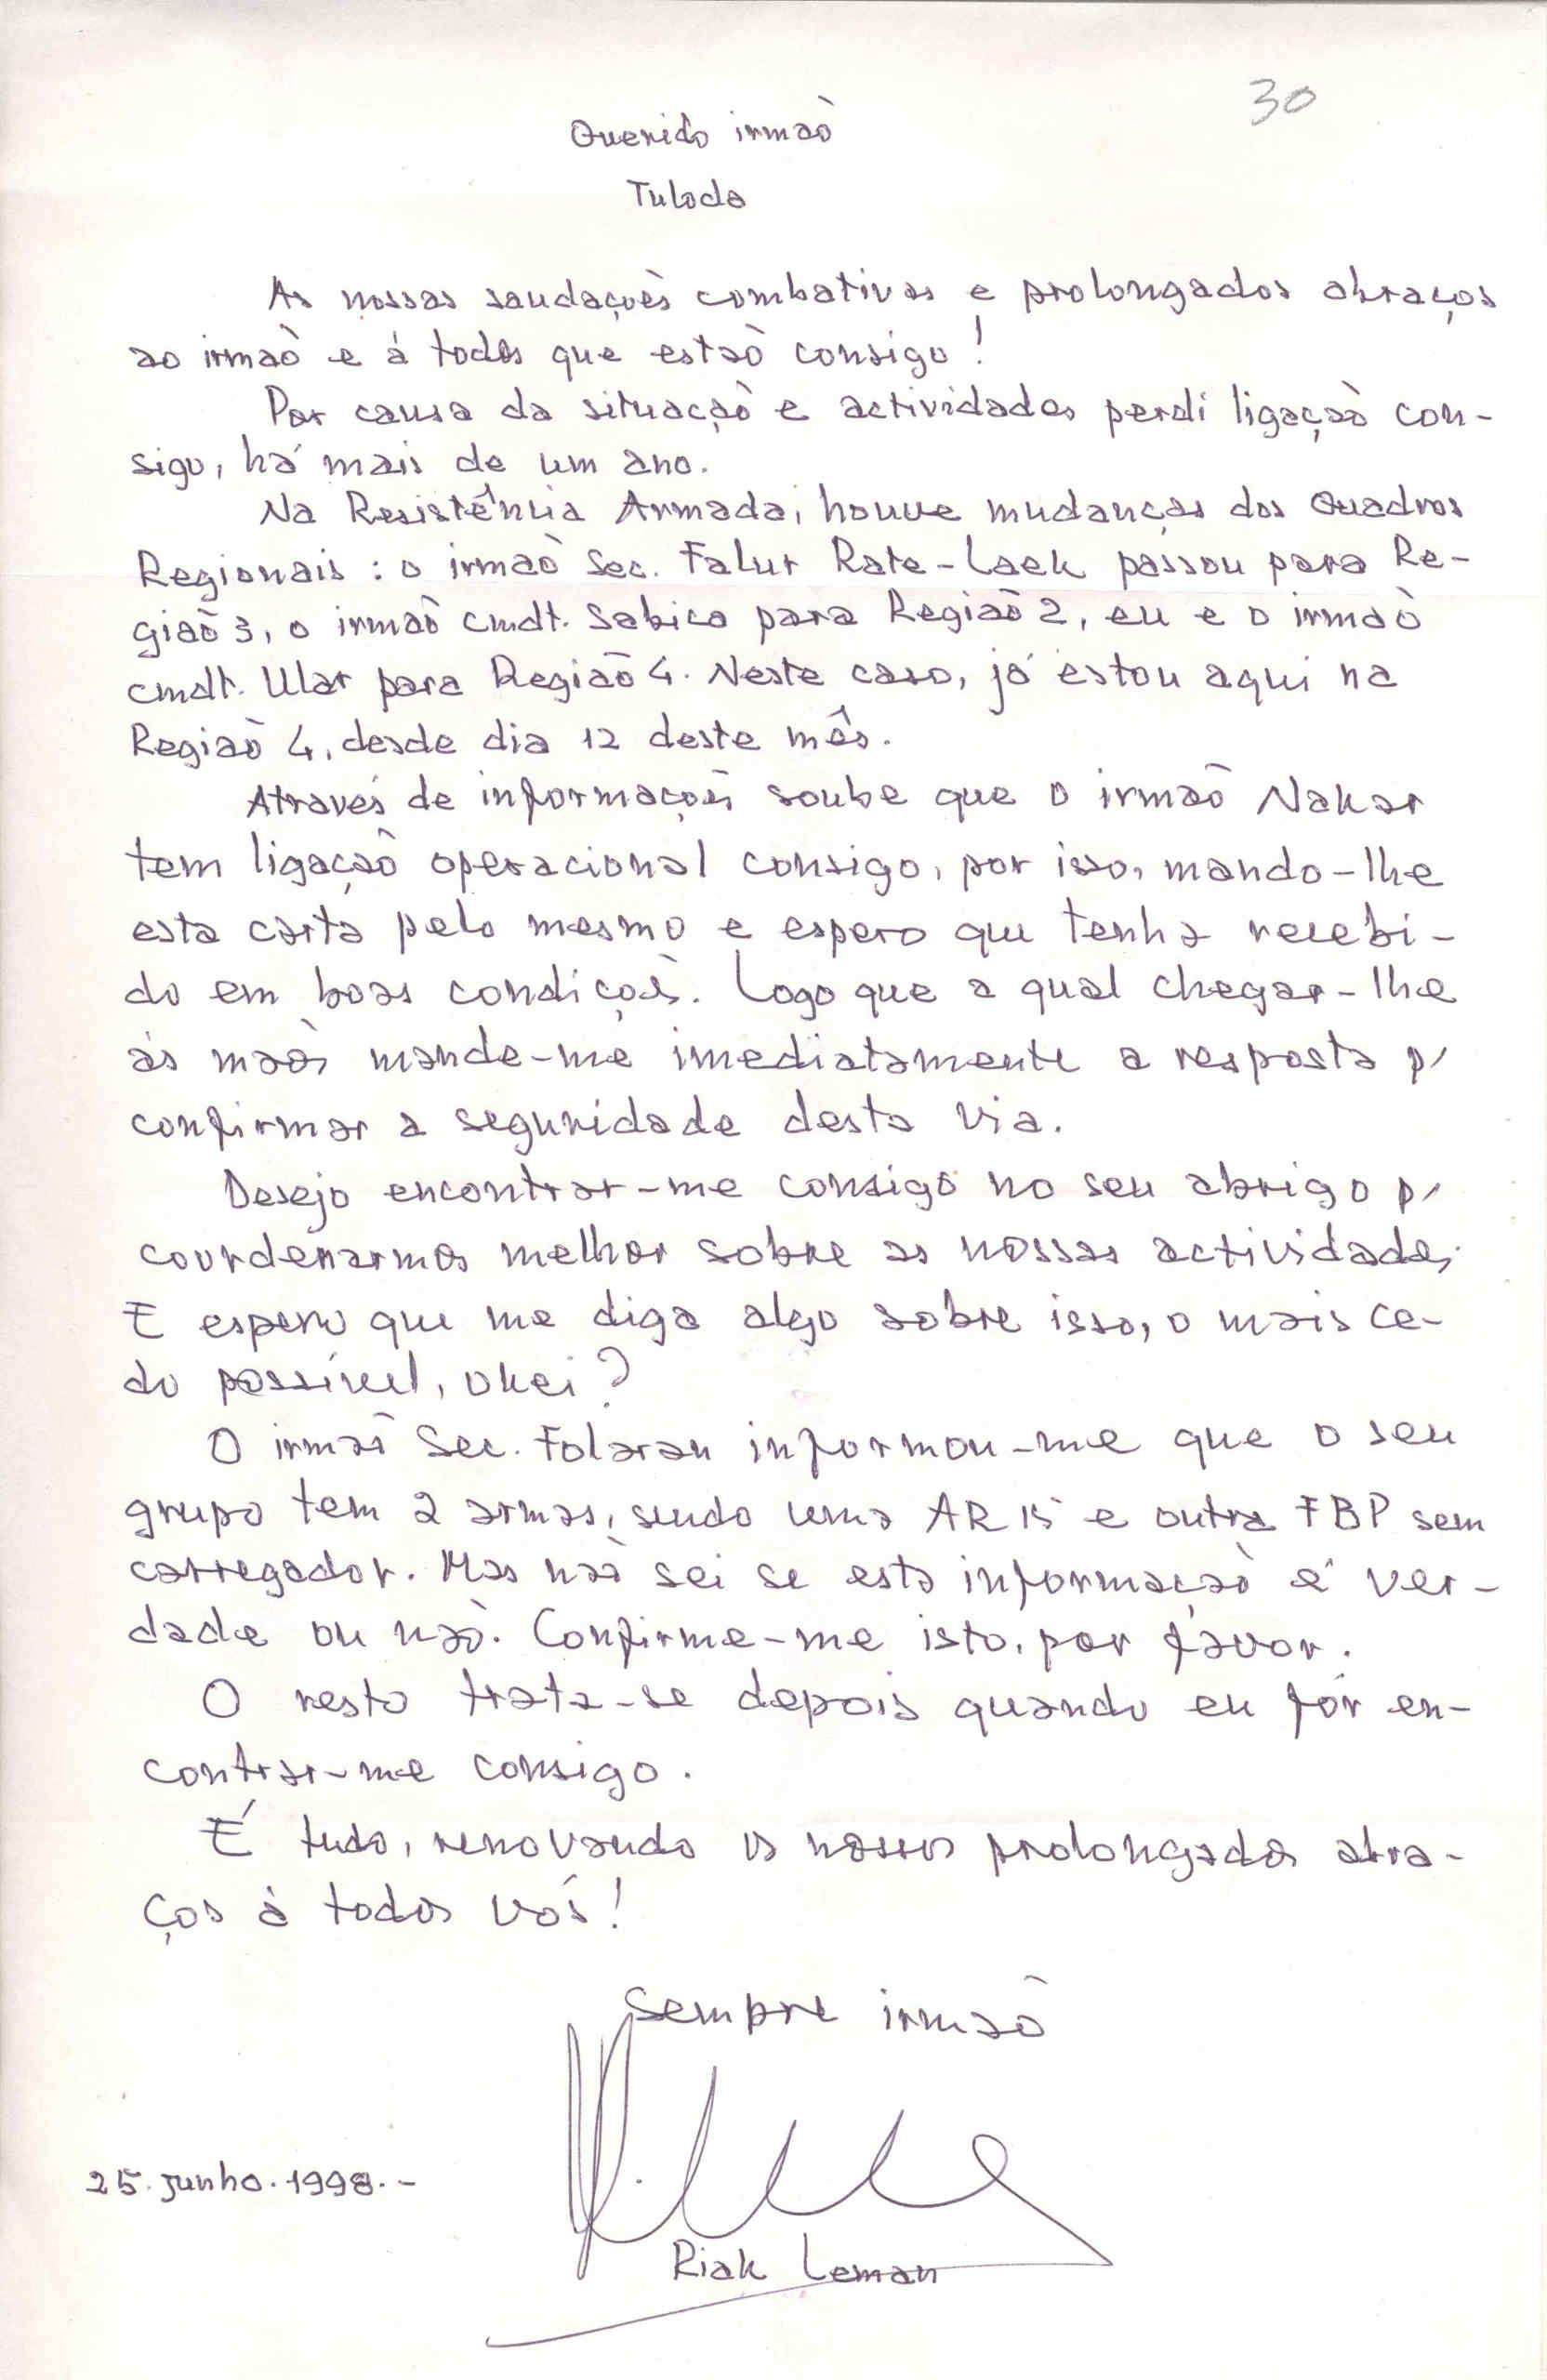 30
Querido irmaõ
Tuloda
As nossas saudaçoẽs combativas e prolongados abraços
ao irmaõ e á todos que estaõ consigo!
Por causa da situaçaõ e actividades perdi ligaçaõ con-
sigo, há mais de um ano.
Na Resistência Armada, houve mudanças dos Quadros
Regionais: o irmaõ Sec. Falur Rate-Laek passou para Re-
giaõ 3, o irmaõ cmdt. Sabica para Regiaõ 2, eu e o irmaõ
cmdt. Ular para Regiaõ 4. Neste caso, já estou aqui na
Regiaõ 4, desde dia 12 deste mês.
Através de informaçoẽs soube que o irmaõ Nakar
tem ligaçaõ operacional consigo, por isso, mando-lhe
esta carta pelo mesmo e espero que tenha recebi-
do em boas condiçoẽs. Logo que a qual chegar-lhe
ás maõs mande-me imediatamente a resposta p/
confirmar a seguridade desta via.
Desejo encontrar-me consigo no seu abrigo p/
courdenarmos melhor sobre as nossas actividades.
E espero que me diga algo sobre isso, o mais ce-
do possível, okei?
O irmaõ Sec. Folaran informou-me que o seu
grupo tem 2 armas, sendo uma AR 15 e outra FBP sem
carregador. Mas naõ sei se esta informaçaõ é ver-
dade ou naõ. Confirme-me isto, por favor.
O resto trata-se depois quando eu fôr en-
contrar-me consigo.
É tudo, renovando os nossos prolongados abra-
ços á todos vós!
Sempre irmaõ
25.Junho.1998.-
Riak Leman